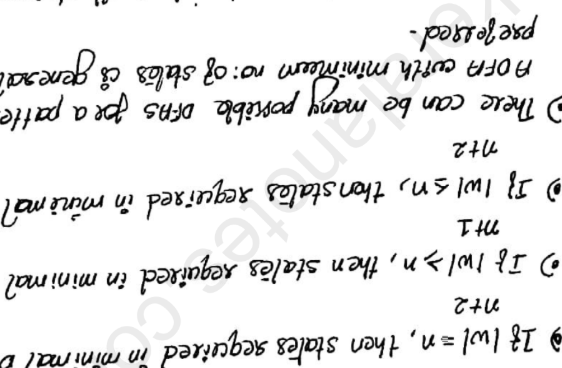 If |w| = n, then states required in minimal D
n+2
If |w| ≥ n, then states required in minimal
n+1
If |w| ≤ n, then states required in minimal
n+2
There can be many possible DFAs for a patte
A DFA with minimum no: of states is general
preferred.